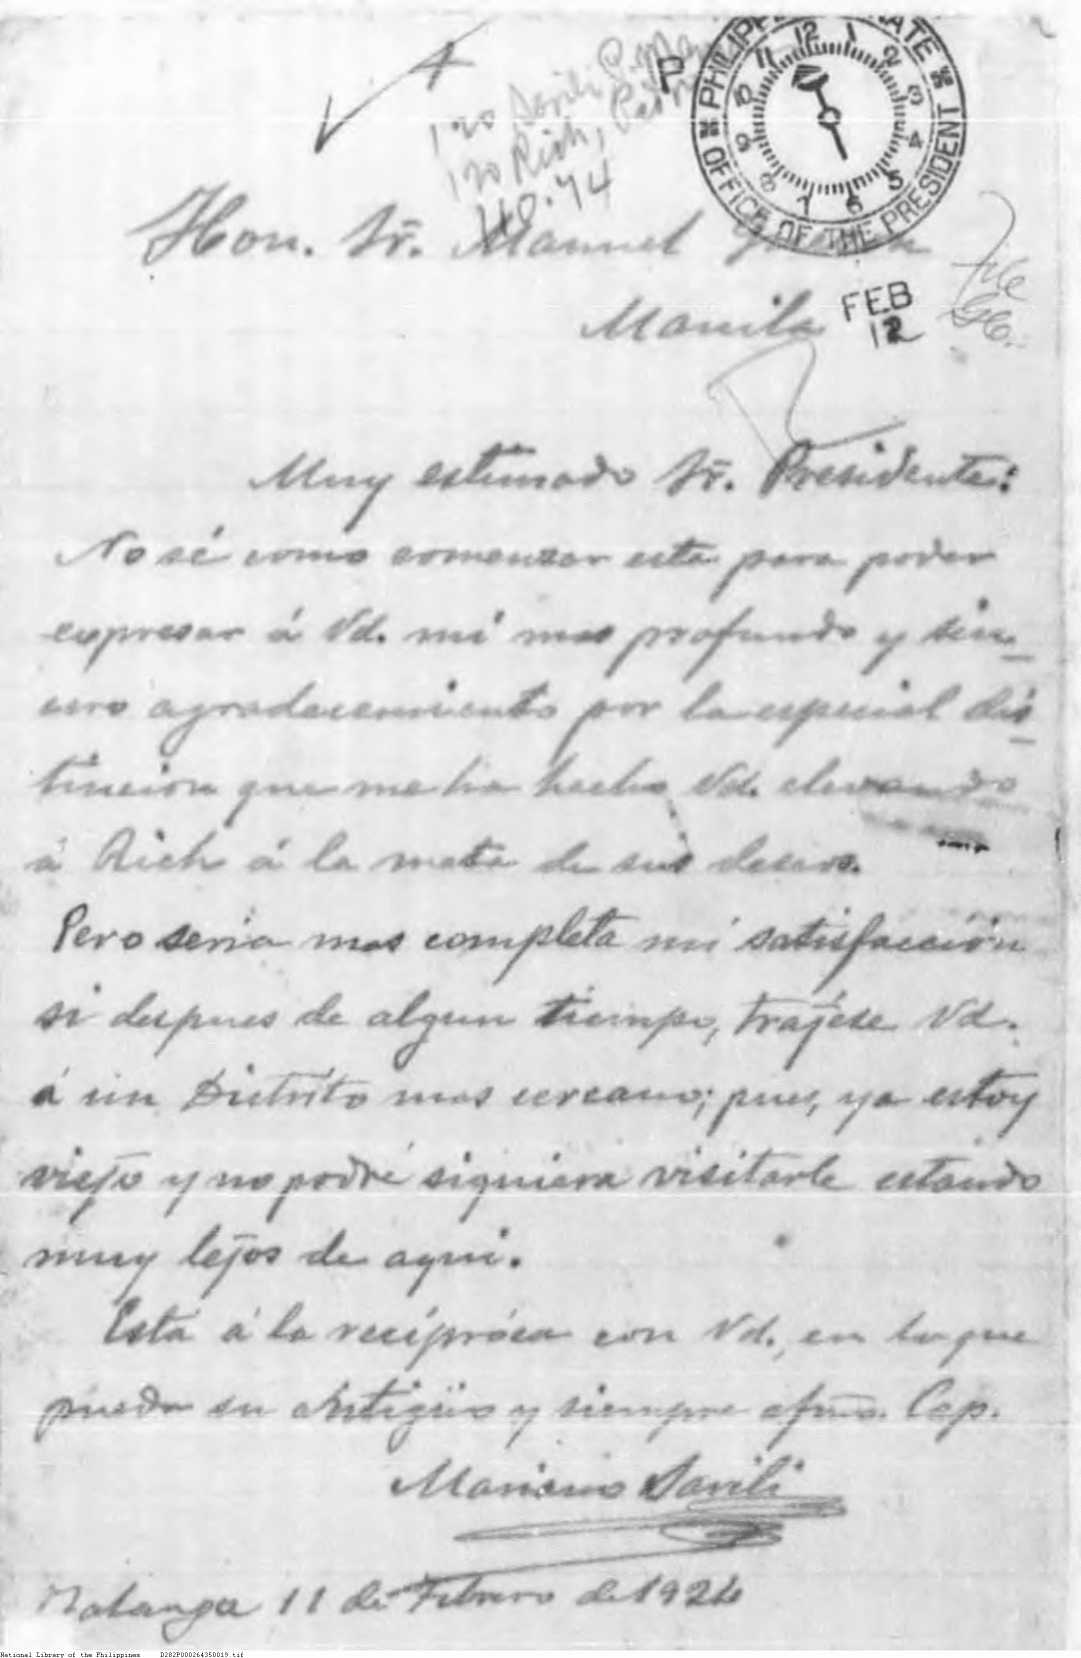 120 Savili
120 Rich, Pedro
PHILIPPINE SENATE
OFFICE OF THE PRESIDENT
12 1 2 3 4 5 6 7 8 9 10 11
P
Hon. Sr. Manuel
Manila
FEB
12
File
Muy estimado Sr. Presidente:
No sé como comenzar esta para poder
expresar á Vd. mi mas profundo y sin-
cero agradecimiento por la especial dis-
tincion que me ha hecho Vd. elevando
á Rich á la meta de sus deseos.
Pero seria mas completa mi satisfacción
si despues de algun tiempo, trajese Vd.
á un Distrito mas cercano; pues, ya estoy
viejo y no podré siquiera visitarle estando
muy lejos de aqui.
Está á la recíproca con Vd., en lo que
pueda su Antigüo y siempre afmo. Cap.
Mariano Savili
11 de Febrero de 1924
National Library of the Philippines D282P000264350019.tif